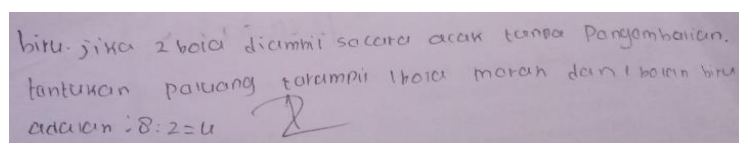 biru. jika 2 bola diambil secara acak tanpa Pengembalian.
tentukan peluang terampil 1 bola merah dan 1 bolan biru
adalan : 8 : 2 = 4
2